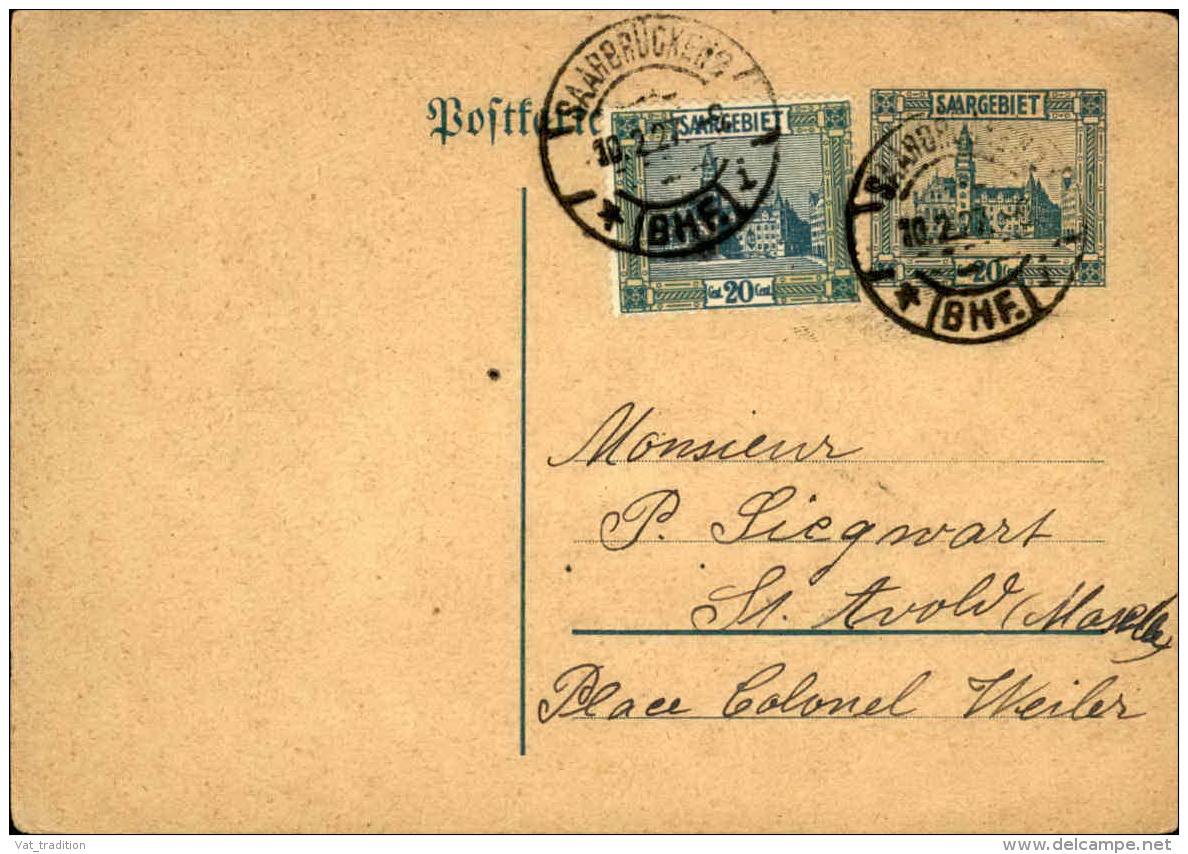 Postkarte
SAARBRÜCKEN 2
10.2.27
* BHF. i
SAARGEBIET
Cent. 20 Cent.
SAARGEBIET
SAARBRÜCKEN 2
10.2.27
20
* BHF. i
Monsieur
P. Siegwart
St. Avold (Moselle)
Place Colonel Weiler
Vat_tradition
delcampe.net